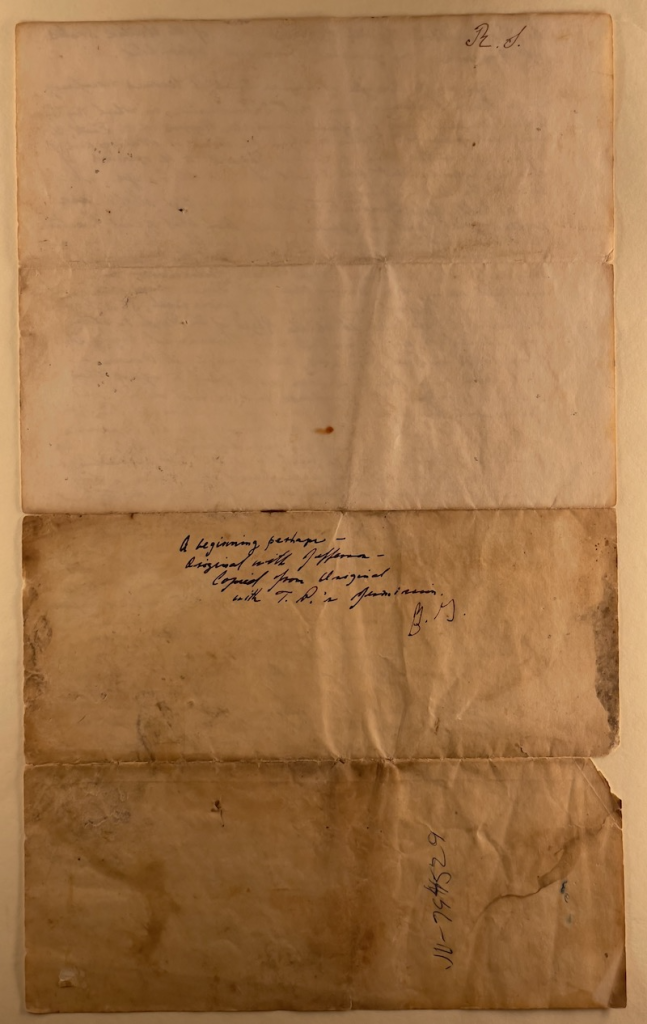 R. S.
A beginning perhaps –
Original with Jefferson –
Copied from Original
with T. P.'s permission.
B. G.